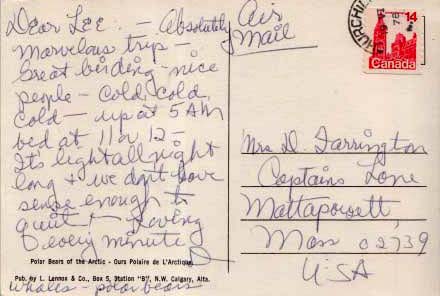 Dear Lee - Absolutely
marvelous trip -
Great birding - nice
people - cold cold
cold - up at 5 AM
bed at 11 or 12 -
It's light all night
long & we don't have
sense enough to
quit - Loving
every minute
Polar Bears of the Arctic - Ours Polaire de L'Arctique
Pub. by L. Lennox & Co., Box 5, Station "B", N.W. Calgary, Alta.
whales - polar bears
Air
Mail
CHURCHIL
78
14
Canada
Mrs D. Farrington
Captains Lane
Mattapoisett,
Mass 02739
USA